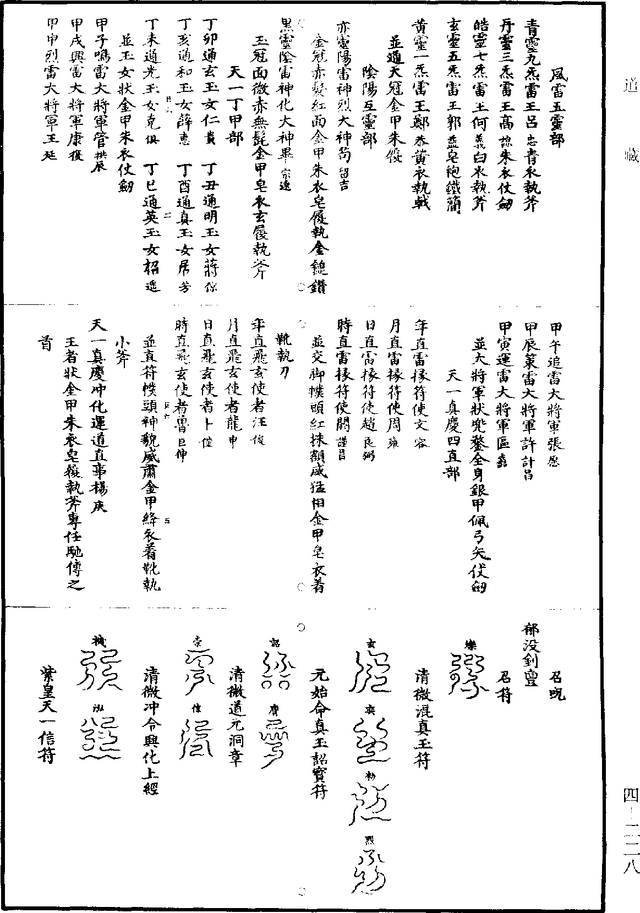 道藏
風雷五靈部
青靈九炁雷王呂忠青衣執斧
丹靈三炁雷王高諒朱衣仗劒
皓靈七炁雷王何義白衣執斧
玄靈五炁雷王郭益皂袍鐵簡
黃靈一炁雷王鄭恭黃衣執戟
並通天冠金甲朱履
陰陽互靈部
亦靈陽雷神烈大神苟留吉
金冠赤髮紅面金甲朱衣皂履執金鎚鑽
黑靈陰雷神化大神畢宗遠
玉冠面微赤無髭金甲皂衣玄履執斧
天一丁甲部
丁卯通玄玉女仁貴 丁丑通明玉女蔣倞
丁亥通和玉女薛惠 丁酉通真玉女房芳
丁未通光玉女克俱 丁巳通英玉女招遙
並玉女狀金甲朱衣仗劒
甲子鳴雷大將軍管拱辰
甲戌興雷大將軍康獲
甲申烈雷大將軍王延
甲午追雷大將軍張愿
甲辰策雷大將軍許計昌
甲寅運雷大將軍區
並大將軍狀兜鍪全身銀甲佩弓矢仗劒
天一真慶四直部
年直雷掾符使文容
月直雷掾符使周雍
日直雷掾符使趙良弼
時直雷掾符使關謹昌
並交脚幞頭紅抹額威猛相金甲皂衣着
靴執刀
年直飛玄使者汪俊
月直飛玄使者龍申
日直飛玄使者卜佳
時直飛玄使者曾巨伸
並直符幞頭神貌威肅金甲絳衣着靴執
小斧
天一真慶冲化運道直事楊庚
王者狀金甲朱衣皂履執斧專任馳傳之
首
召呪
郁沒剑
召符
樂
清微混真玉符
玄
烈
元始命真玉詔寶符
詔
齊
清微道元洞章
清微冲令興化上經
紫皇天一信符
四-二二八